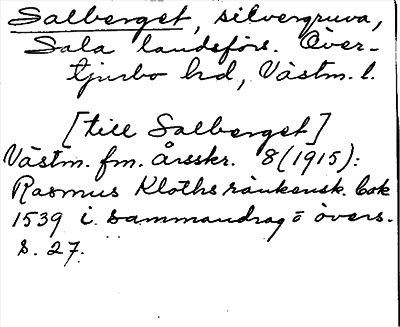 Salberget, silvergruva,
Sala landsförs. Över-
tjurbo hd, Västm. l.
[till Salberget]
Västm. fm. Årsskr. 8 (1915):
Rasmus Kloths räkensk. bok
1539 i sammandrag o övers.
s. 27.